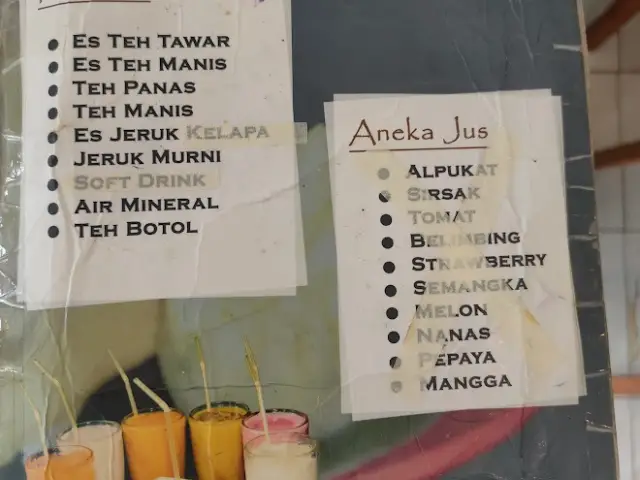 Es Teh Tawar
Es Teh Manis
Teh Panas
Teh Manis
Es Jeruk Kelapa
Jeruk Murni
Soft Drink
Air Mineral
Teh Botol
Aneka Jus
Alpukat
Sirsak
Tomat
Belimbing
Strawberry
Semangka
Melon
Nanas
Pepaya
Mangga